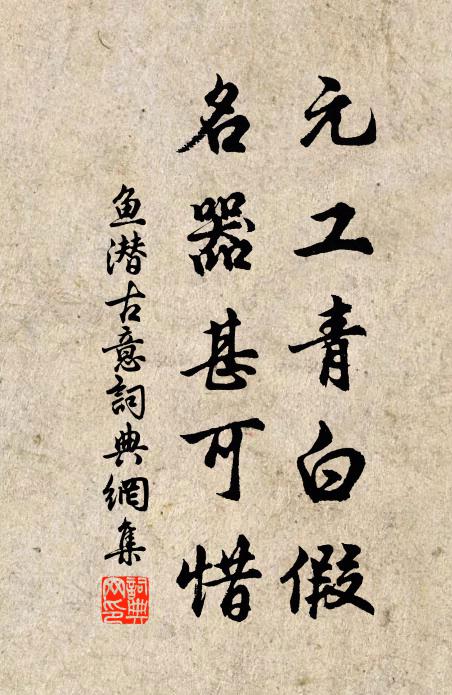 元工青白假
名器甚可惜
鱼潜古意詞典網集
詞典网印